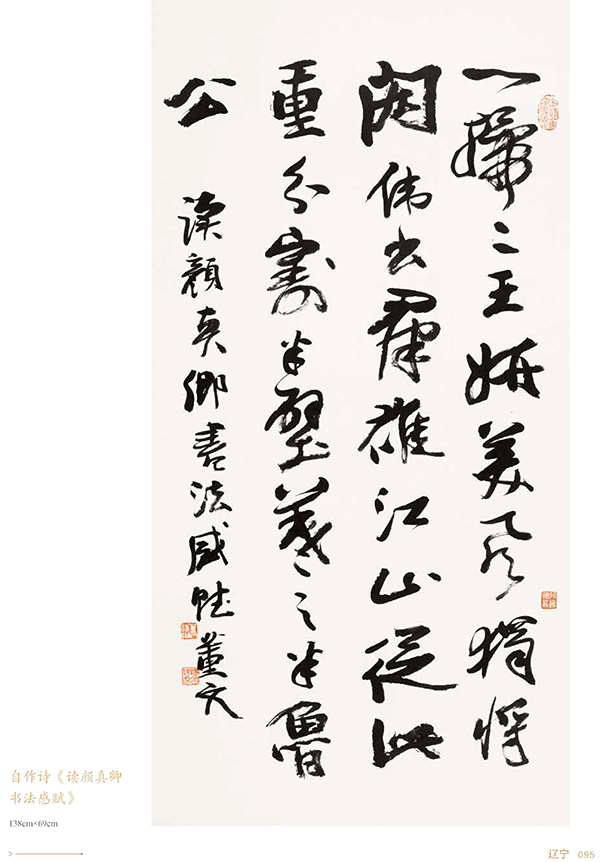 一二王妍美风独将
伟出群雄江山从此
重分割半壁羲之半鲁
公
读颜真卿书法感赋 董文
自作诗《读颜真卿
书法感赋》
138cm×69cm
辽宁 095